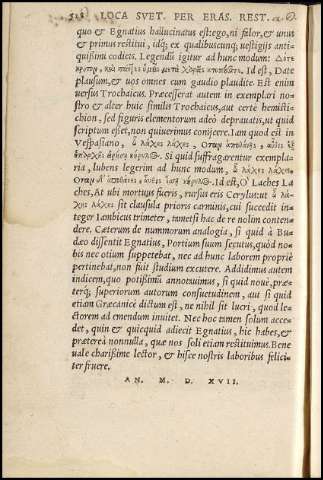 LOCA SVET. PER ERAS. REST.
quo & Egnatius hallucinatus est: ego, ni fallor, & unus
& primus restitui, idq; ex qualibuscunq; uestigijs anti-
quissimi codicis. Legendũ igitur ad hunc modum: Δότε
κρότον, καὶ πάντες ὑμεῖς μετὰ χαρᾶς κτυπήσατε. Id est, Date
plausum, & uos omnes cum gaudio plaudite. Est enim
uersus Trochaicus. Præcesserat autem in exemplari no-
stro & alter huic similis Trochaicus, aut certe hemisti-
chion, sed figuris elementorum adeo deprauatis, ut quid
scriptum esset, non quiuerimus conijcere. Iam quod est in
Vespasiano, ὦ λάχης λάχης, Ὅταν ἀποθάνῃς, αὖθις ἐξ
ἀπαρχῆς ἔσῃ κηρύλος. Si quid suffragarentur exempla-
ria, lubens legerim ad hunc modum, ὦ λάχης λάχης,
Ὅταν δ' ἀποθάνῃς, αὖθις ἔσῃ κηρύλος. Id est, O' Laches La
ches, At ubi mortuus fueris, rursus eris Cerylus: ut ὦ λά-
χης λάχης sit clausula prioris carminis, cui succedit in-
teger Iambicus trimeter, tametsi hac de re nolim conten-
dere. Cæterum de nummorum analogia, si quid à Bu-
dæo dissentit Egnatius, Portium suum secutus, quod no-
bis nec otium suppetebat, nec ad hunc laborem proprie
pertinebat, non fuit studium excutere. Addidimus autem
indicem, quo potissimũ annotauimus, si quid noue, præ-
terq; superiorum autorum consuetudinem, aut si quid
etiam Græcanice dictum est, ne nihil sit lucri, quod le-
ctorem ad emendum inuitet. Nec hoc tamen solum acce-
det, quin & quicquid adiecit Egnatius, hic habes, &
præterea nonnulla, quæ nos soli etiam restituimus. Bene
uale charissime lector, & hisce nostris laboribus felici-
ter fruere.
AN. M. D. XVII.